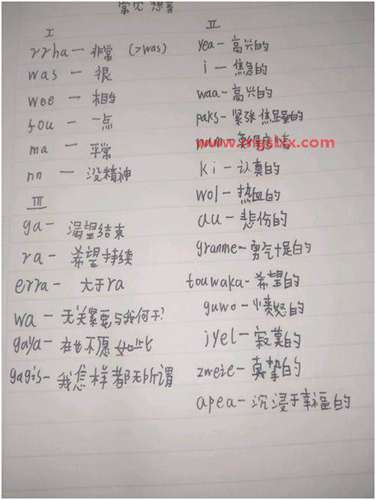 常见想音
I
rrha — 非常 (>was)
was — 很
wee — 相当
fou — 一点
ma — 平常
nn — 没精神
III
ga — 渴望结束
ra — 希望持续
erra — 大于ra
wa — 无关紧要与我何干?
gaya — 在也不愿如此
gagis — 我怎样都无所谓
II
yea — 高兴的
i — 焦急的
waa — 高兴的
paks — 紧张
ki — 认真的
wol — 热血的
au — 悲伤的
granme — 勇气十足的
touwaka — 希望的
guwo — 愤怒的
jyel — 寂寞的
zweie — 真挚的
apea — 沉浸于幸福的